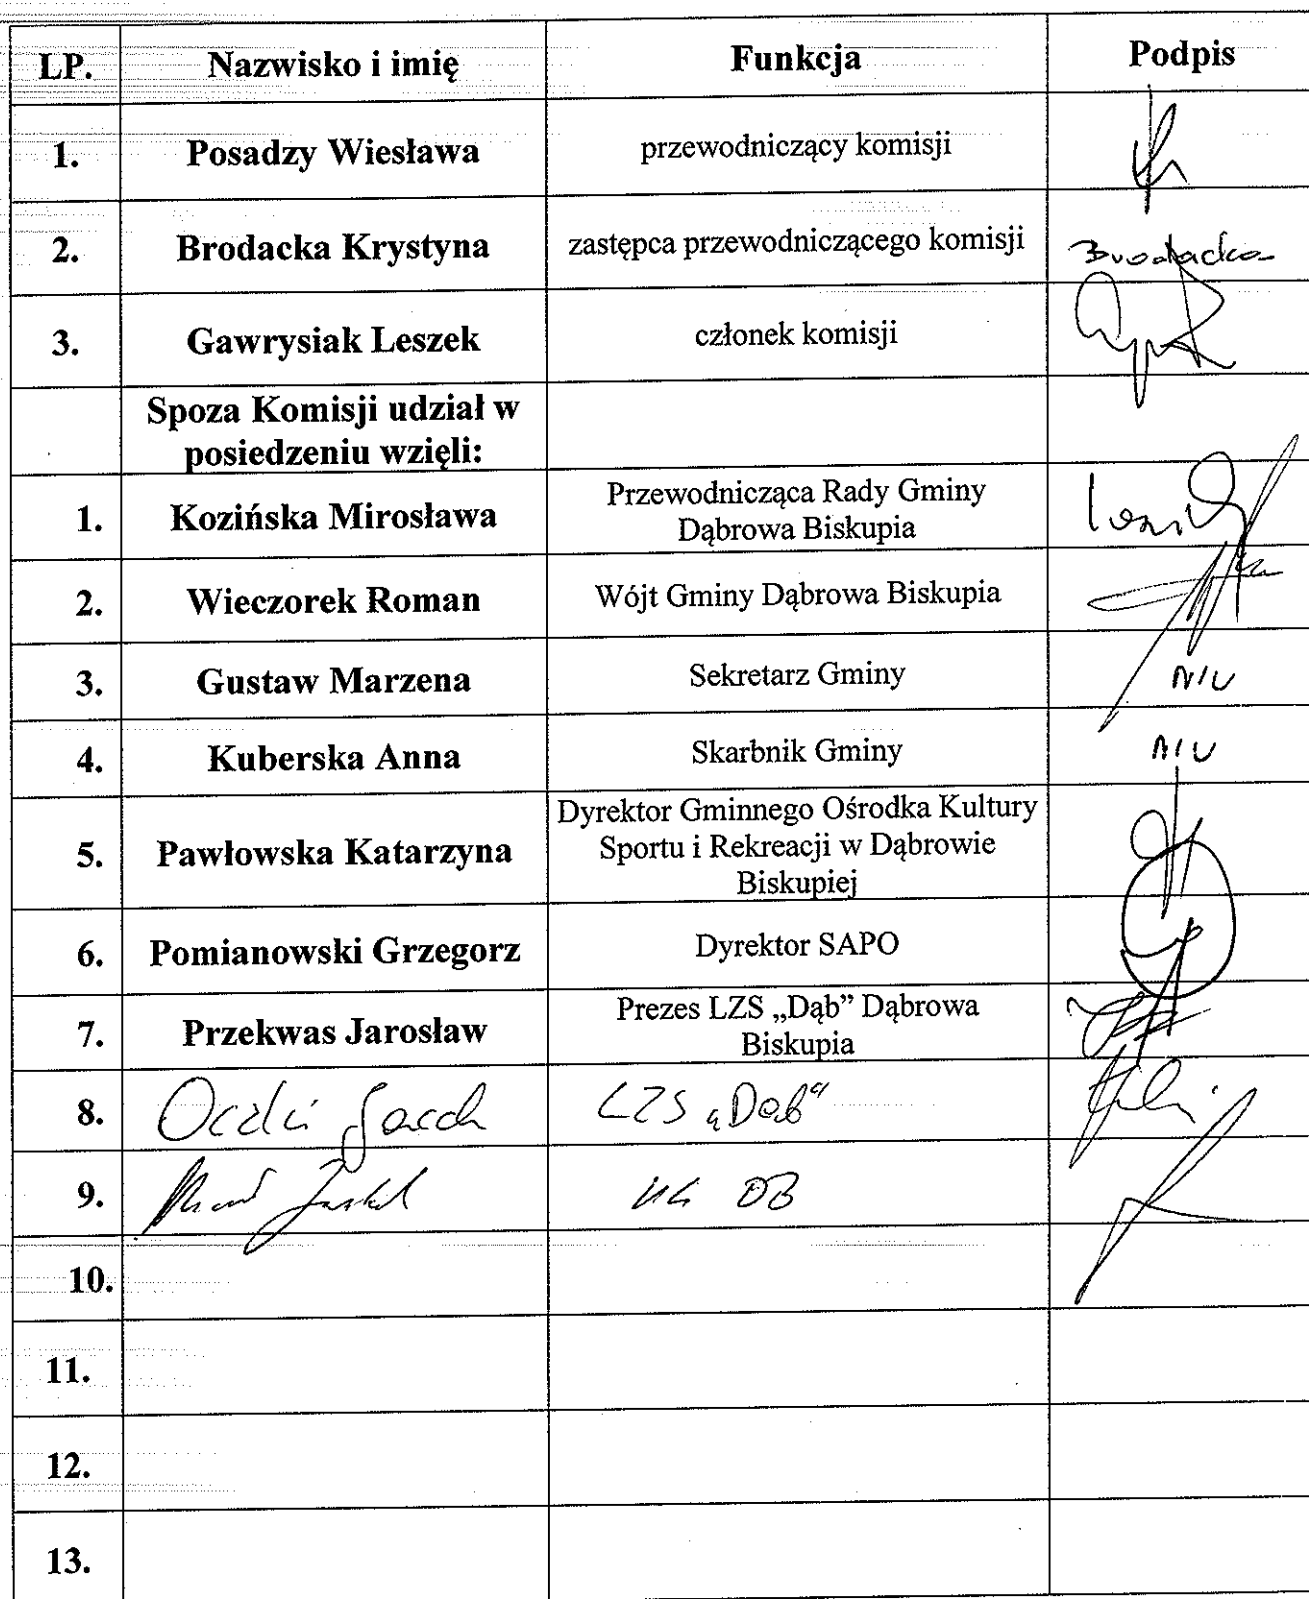 LP. Nazwisko i imię Funkcja Podpis
1. Posadzy Wiesława przewodniczący komisji
2. Brodacka Krystyna zastępca przewodniczącego komisji Brodacka
3. Gawrysiak Leszek członek komisji
Spoza Komisji udział w
posiedzeniu wzięli:
1. Kozińska Mirosława Przewodnicząca Rady Gminy
Dąbrowa Biskupia
2. Wieczorek Roman Wójt Gminy Dąbrowa Biskupia
3. Gustaw Marzena Sekretarz Gminy N/U
4. Kuberska Anna Skarbnik Gminy N/U
Dyrektor Gminnego Ośrodka Kultury
5. Pawłowska Katarzyna Sportu i Rekreacji w Dąbrowie
Biskupiej
6. Pomianowski Grzegorz Dyrektor SAPO
7. Przekwas Jarosław Prezes LZS „Dąb” Dąbrowa
Biskupia
8. LZS „Dąb"
9. UG DB
10.
11.
12.
13.